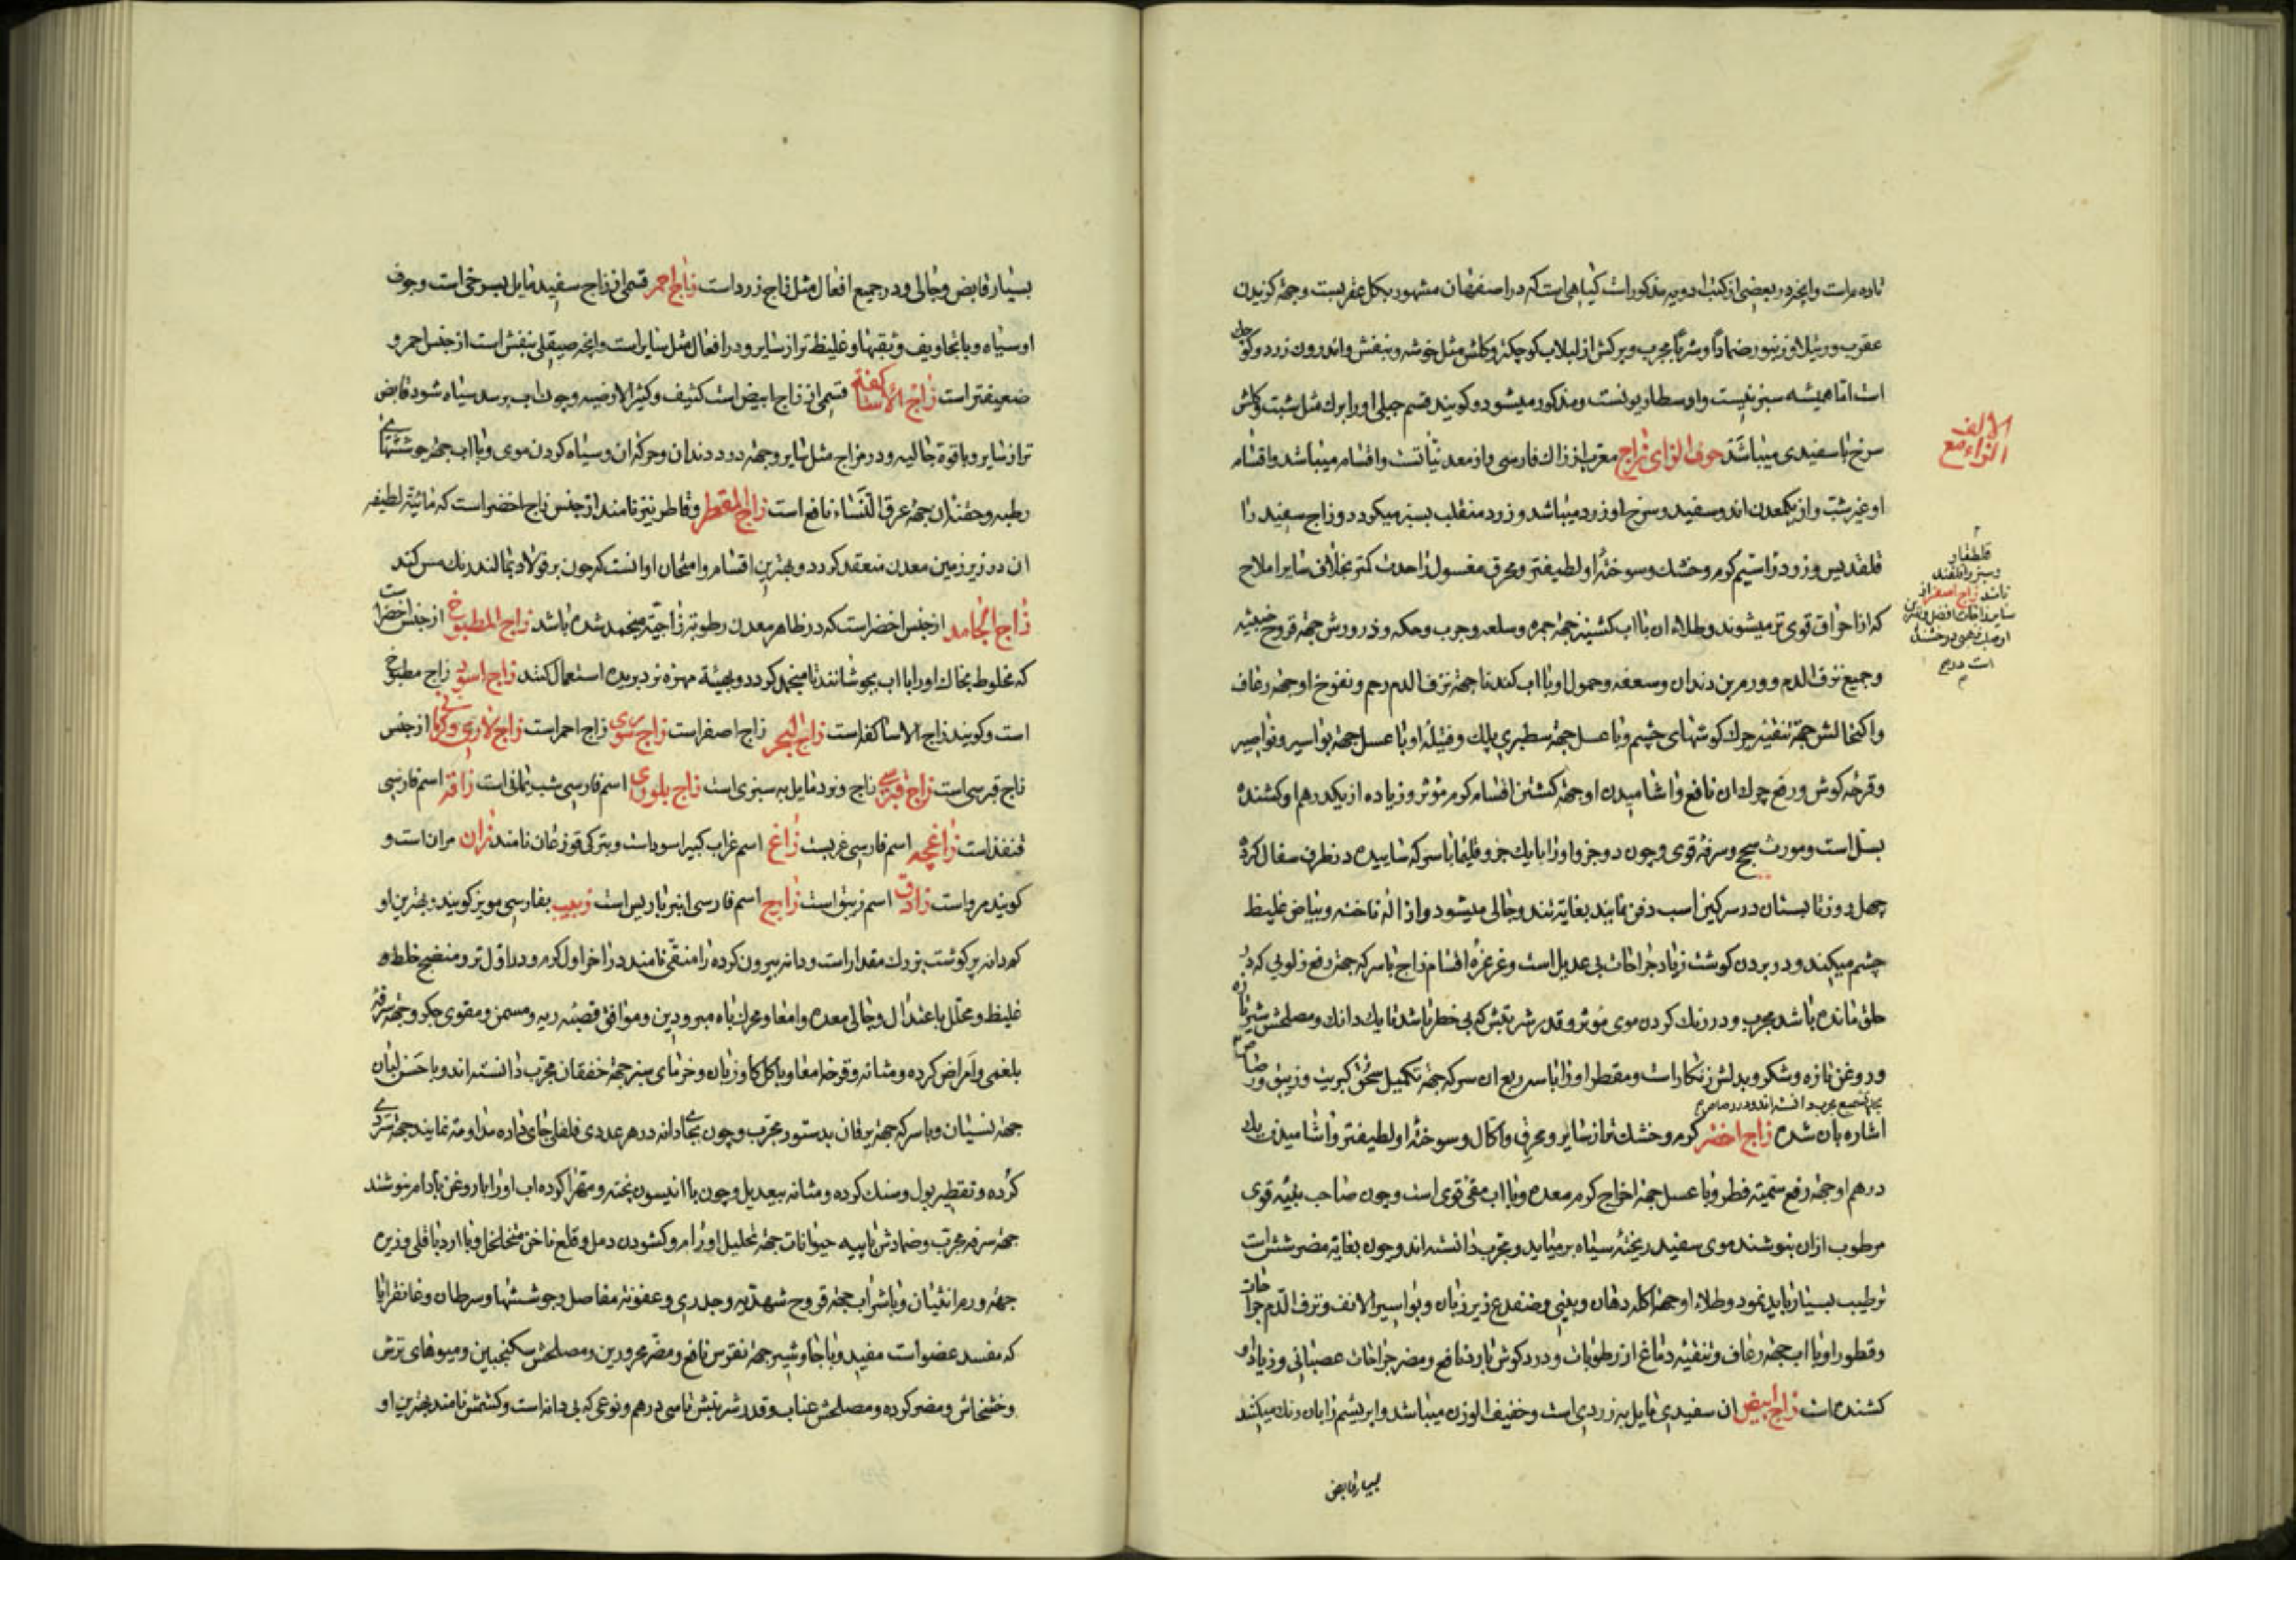 تازه مرات وانچه در بعضی از کتب ادویه مذکورات کیاهی است که در اصفهان مشهور بکل عقربست وجهة کزیدن
عقرب ورتیلا وزنبور ضمادا وشربا مجرب وبرکش از لبلاب کوچکتر وکلش مثل خوشه وبنفش واندرون زرد وکو
است اما همیشه سبز نیست واو سطاریونست ومذکور میشود وکویند قسم جبلی او را برك مثل شبت وکلش
سرخ با سفیدی میباشد حرف الزای زاج معرب از زاك فارسی واز معدنیاتست واقسام میباشد واقسام
او غیر شب واز یکمعدن اند وسفید وسرخ او زرد میباشد وزرد منقلب بسبز میکردد وزاج سفید را
قلقدیس وزرد در اسیم کرم وخشك وسوختهٔ او لطیفتر ومحرق مغسول را حدت کمتر بخلاف سایر املاح
که از احراق قوی تر میشوند وطلاء ان با اب کشنیز جهة جمره وسلعه وجرب وحکه وذرورش جهة قروح خبیثه
وجمیع نزف الدم وورم بن دندان وسعفه وحمول او با اب کندنا جهة نزف الدم رحم ونفوخ او جهة رعاف
واکتحالش جهة تنقیه چرك کوشهای چشم وبا عسل جهة سطبری پلك وفتیلهٔ او با عسل جهة بواسیر ونواصیر
وقرحهٔ کوش ورفع چرك ان نافع واشامیدن او جهة کشتن اقسام کرم مؤثر وزیاده از یکدرهم او کشنده
بسل است ومورث سحج وسرفهٔ قوی وچون دو جزو او را با یك جزو قلیمیا با سرکه ساییده در ظرف سفال کرده
چهل روز تابستان در سرکین اسب دفن نمایند بغایة تند وجالی میشود وازاله ناخنه وبیاض غلیظ
چشم میکند ودر بردن کوشت زیاد جراحات بی عدیل است وغرغرهٔ اقسام زاج با سرکه جهة رفع زلویی که در
حلق مانده باشد مجرب ودر رنك کردن موی موثر وقدر شربتش که بی خطر باشد تا یك دانك ومصلحش شیر تازه
وروغن تازه وشکر وبدلش زنکارات ومقطر او را با سه ربع ان سرکه جهة تکمیل سحق کبریت وزیبق ورصاص
اشاره بان شده زاج اخضر کرم وخشك تر از سایر ومحرق واکال وسوختهٔ او لطیفتر واشامیدن یك
درهم او جهة رفع سمیة فطر وبا عسل جهة اخراج کرم معده وبا اب مقئ قوی است وچون صاحب بنیهٔ قوی
مرطوب ازان بنوشند موی سفید ریخته سیاه برمیاید ومجرب دانسته اند وچون بغایة مضر شش است
ترطیب بسیار باید نمود وطلاء او جهة اکله دهان وبینی وضفدع زیر زبان وبواسیر الانف ونزف الدم جراحات
وقطور او با اب جهة رعاف وتنقیه دماغ از رطوبات ودرد کوش بارد نافع ومضر جراحات عصبانی وزیاد او
کشنده است زاج ابیض ان سفیدی مایل بزردی است وخفیف الوزن میباشد وابریشم را بان رنك میکنند
بسیار قابض
الالف
الزاء مع
قلقطار
وسبز را قلقند
نامند زاج اصفر از
سایر زاجات افضل
بسیار قابض وجالی ودر جمیع افعال مثل زاج زرد است زاج احمر قسمی از زاج سفید مایل بسرخی است وجوف
او سیاه وبا تجاویف وثقبها وغلیظ تر از سایر ودر افعال مثل سایر است وانچه صیقلی بنفش است از جنس احمر و
ضعیفتر است زاج الاساکفه قسمی از زاج ابیض است کثیف وکثیر الارضیه وچون اب برسد سیاه شود قابض
تر از سایر وبا قوة جالیه ودر مزاج مثل سایر وجهة درد دندان وحرکه ان وسیاه کردن موی وبا اب جهة جوششهای
رطبه وحقنه ان جهة عرق النساء نافع است زاج المقطر وقاطر نیز نامند از جنس زاج اخضر است که مائیة لطیفه
ان در زیر زمین معدن منعقد کردد وبهترین اقسام وامتحان او انست که چون بر فولاد بمالند رنك مس کند
زاج الجامد از جنس اخضر است که در ظاهر معدن رطوبة زاجیة منجمد شده باشد زاج المطبوخ از جنس اخضر است
که مخلوط بخاك او را با اب بجوشانند تا منجمد کردد وبهیئة مهره نرد بریده استعمال کنند زاج اسود زاج مطبوخ
است وکویند زاج الاساکفه است زاج البحر زاج اصفر است زاج سوری زاج احمر است زاج لازوردی وکرمانی از جنس
زاج قبرسی است زاج قبرسی زاج زرد مایل به سبزی است زاج بلوری اسم فارسی شب یمانی است زافه اسم فارسی
قنفذ است زاغچه اسم فارسی غریبست زاغ اسم غراب کبیر اسود است وبترکی قوزغان نامند زان مران است و
کویند مرو است زاوق اسم زیبق است زارج اسم فارسی انبرباریس است زبیب بفارسی مویز کویند وبهترین او
که دانه پر کوشت بزرك مقدار است ودانه بیرون کرده را منقی نامند در اخر اول کرم ودر اول تر ومنضج خلط
غلیظ ومحلل باعتدال وجالی معده وامعا ومحرك باه مبرودین وموافق قصبه ریه ومسمن ومقوی جکر وجهة سرفهٔ
بلغمی وامراض کرده ومثانه وقرحه امعا وبا کل کاوزبان وخرمای سبز جهة خفقان مجرب دانسته اند وبا حسن لبان
جهة نسیان وبا سرکه جهة یرقان بدستور مجرب وچون بجای دانه در هر عددی فلفلی جای داده مداومة نمایند جهة سردی
کرده وتقطیر بول وسنك کرده ومثانه بیعدیل وچون با انیسون پخته ومهرا کرده اب او را با روغن بادام بنوشند
جهة سرفه مجرب وضمادش با پیه حیوانات جهة تحلیل اورام وکشودن دمل وقلع ناخن متخلخل وبا ارد باقلی وزیره
جهة ورم انثیان وبا شراب جهة قروح شهدیه وجدری وعفونة مفاصل وجوششها وسرطان وغانغرایا
که مفسد عضو است مفید وبا جاوشیر جهة نقرس نافع ومضر محرورین ومصلحش سکنجبین ومیوهای ترش
وخشخاش ومضر کرده ومصلحش عناب وقدر شربتش تا سی درهم ونوعی که بی دانه است وکشمش نامند بهترین او